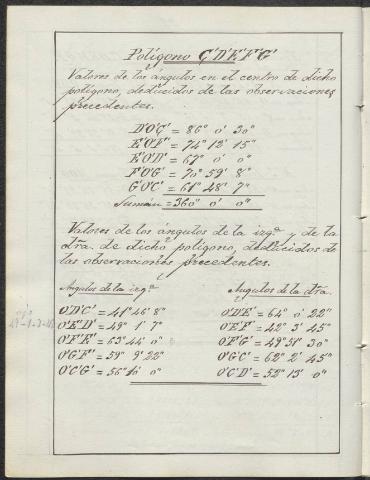 Polígono C'D'E'F'G'
Valores de los ángulos en el centro de dicho
polígono, deducidos de las observaciones
precedentes.
D'O'C' = 86° 0' 30"
E'O'F' = 74° 12' 15"
E'O'D' = 67° 0' 0"
F'O'G' = 70° 59' 8"
G'O'C' = 61° 48' 7"
Suman = 360° 0' 0"
Valores de los ángulos de la izqª y de la
dra. de dicho polígono, deducidos de
las observaciones precedentes.
Angulos de la izqª Angulos de la dra.
O'D'C' = 41° 46' 8" O'D'E' = 64° 0' 22"
O'E'D' = 49° 1' 7" O'E'F' = 42° 3' 45"
O'F'E' = 63° 44' 0" O'F'G' = 49° 51' 30"
O'G'F' = 59° 9' 22" O'G'C' = 62° 2' 45"
O'C'G' = 56° 10' 0" O'C'D' = 52° 13' 0"